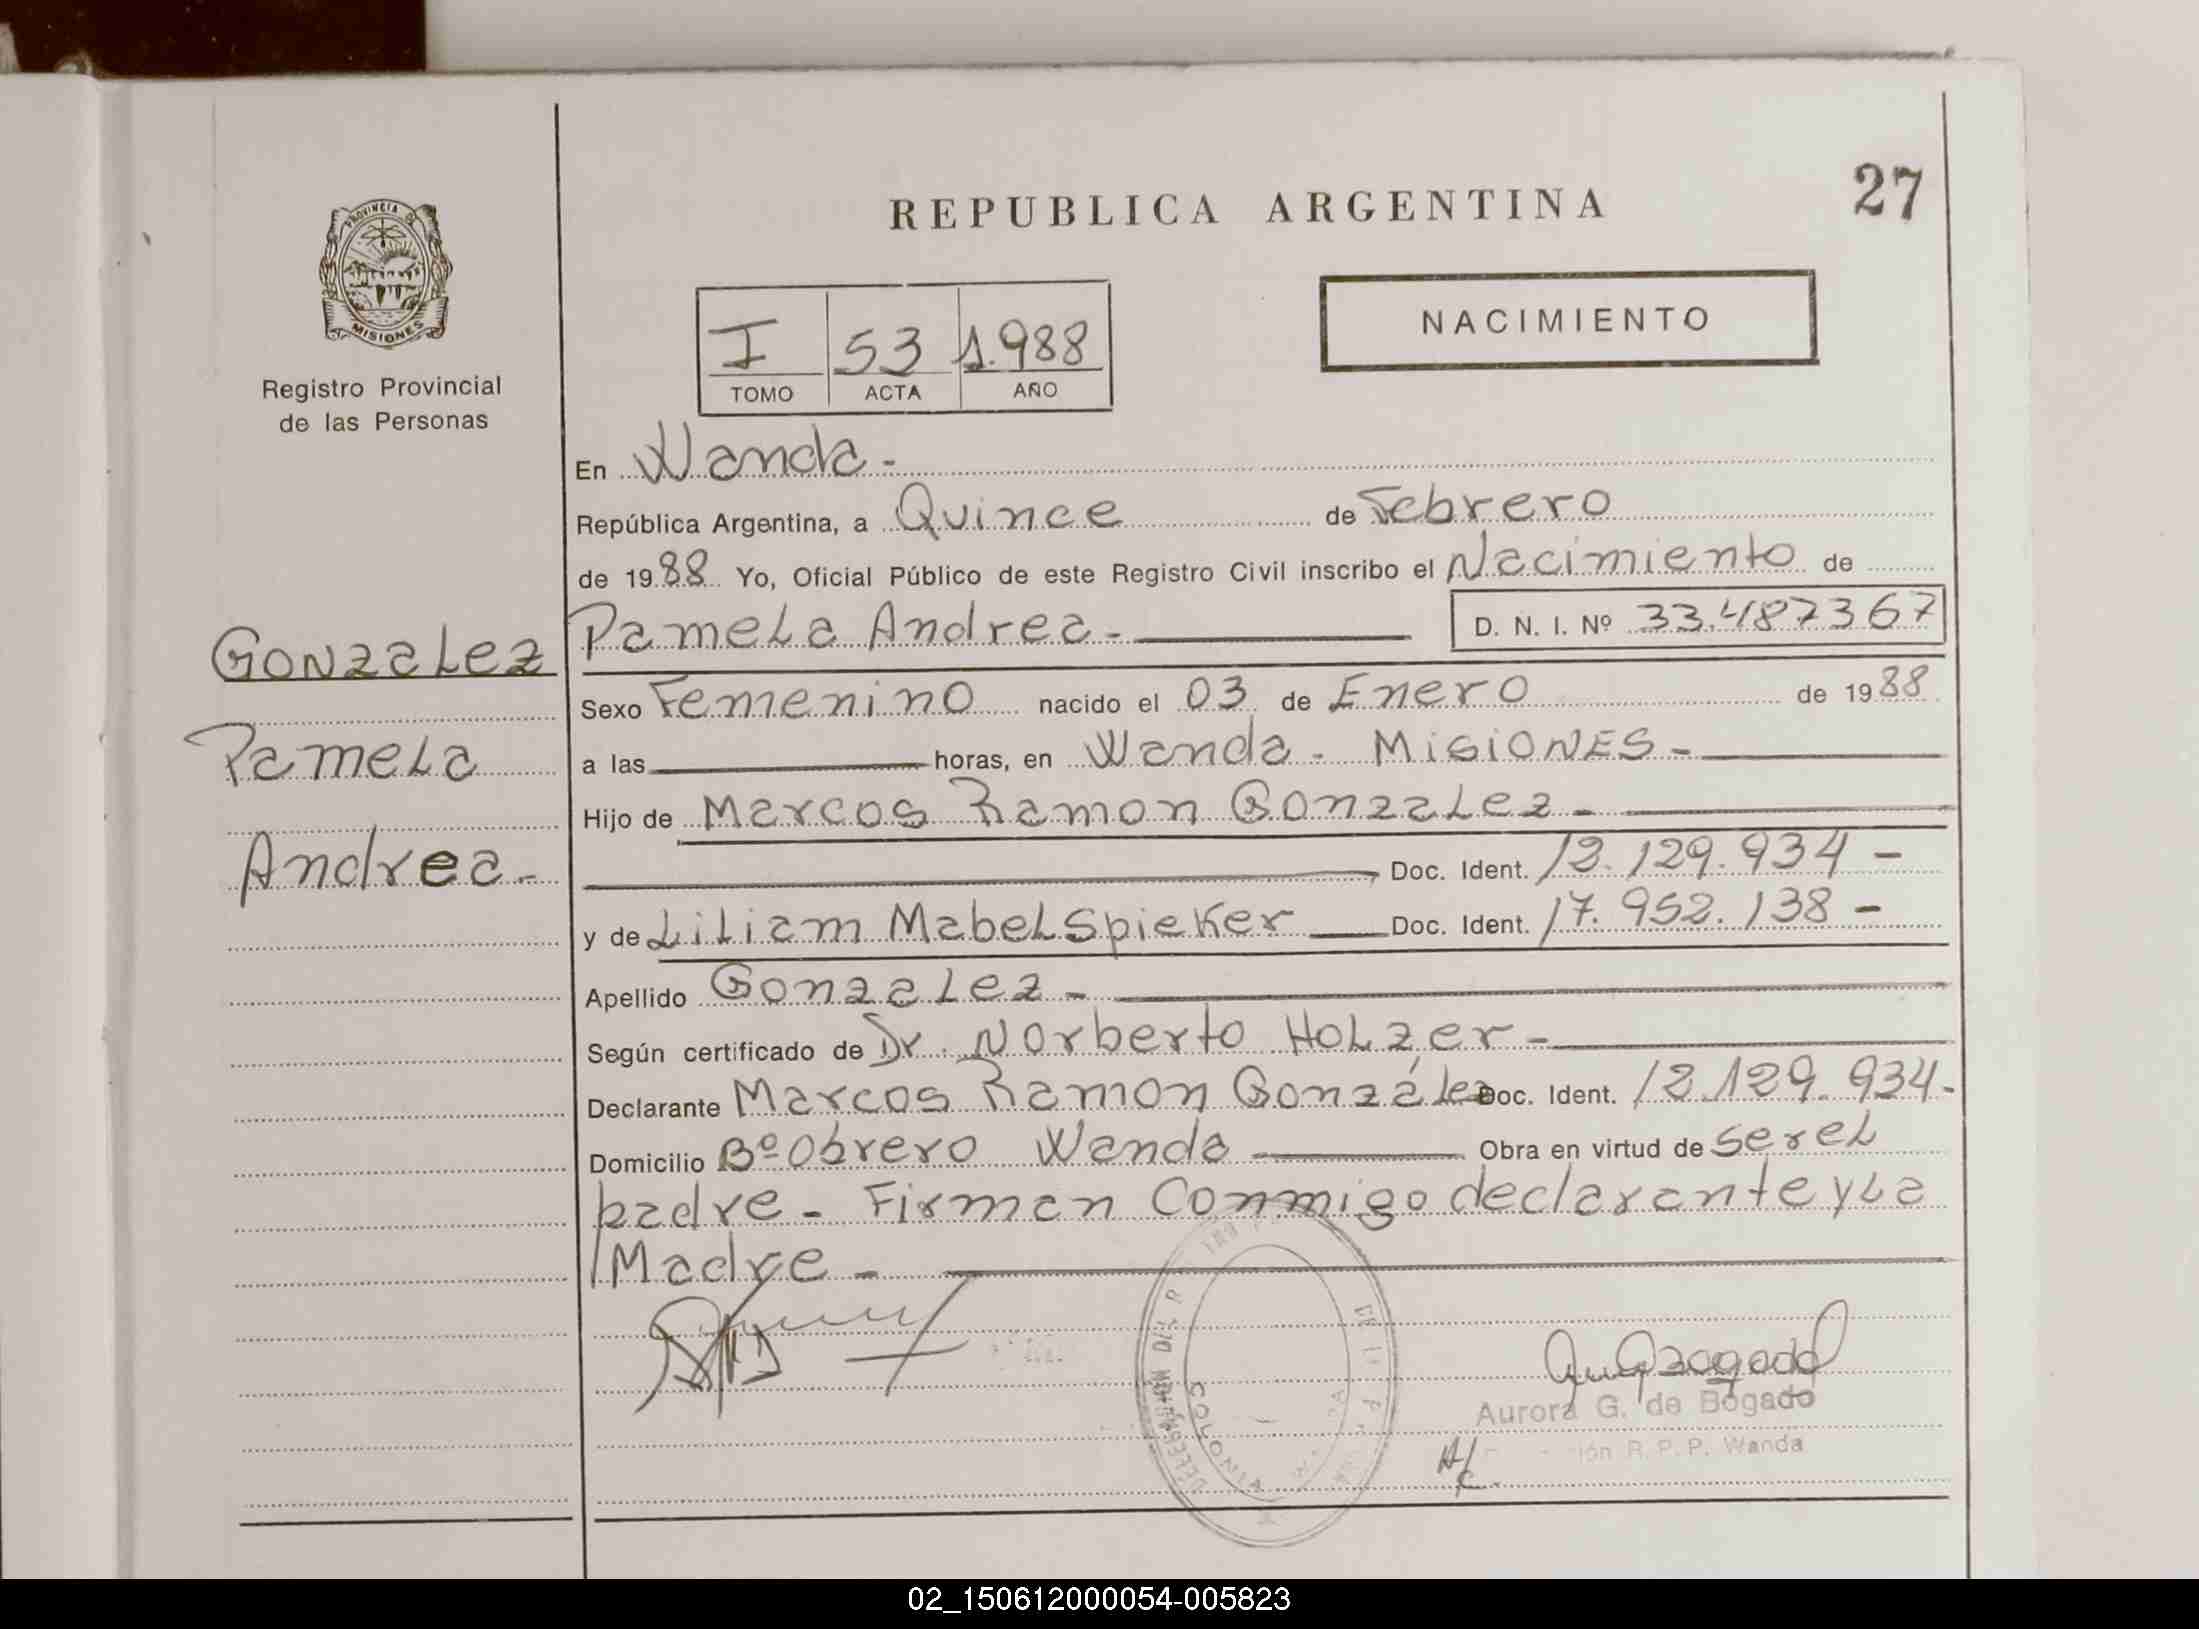 27
REPUBLICA ARGENTINA
PROVINCIA DE
MISIONES
Registro Provincial
de las Personas
NACIMIENTO
I 53 1.988
TOMO ACTA AÑO
En Wanda -
República Argentina, a Quince de Febrero
de 1988 Yo, Oficial Público de este Registro Civil inscribo el Nacimiento de
Pamela Andrea - D. N. I. Nº 33.487367
Gonzalez
Pamela
Andrea -
Sexo Femenino nacido el 03 de Enero de 1988
a las horas, en Wanda - Misiones -
Hijo de Marcos Ramon Gonzalez -
Doc. Ident. 12.129.934 -
y de Liliam Mabel Spieker Doc. Ident. 17.952.138 -
Apellido Gonzalez -
Según certificado de Dr. Norberto Holzer -
Declarante Marcos Ramon González Doc. Ident. 12.129.934 -
Domicilio Bº Obrero Wanda Obra en virtud de ser el
padre - Firman Conmigo declarante y la
Madre -
Aurora G. de Bogado
R. P. P. Wanda
A/c.
COLONIA WANDA
02_150612000054-005823